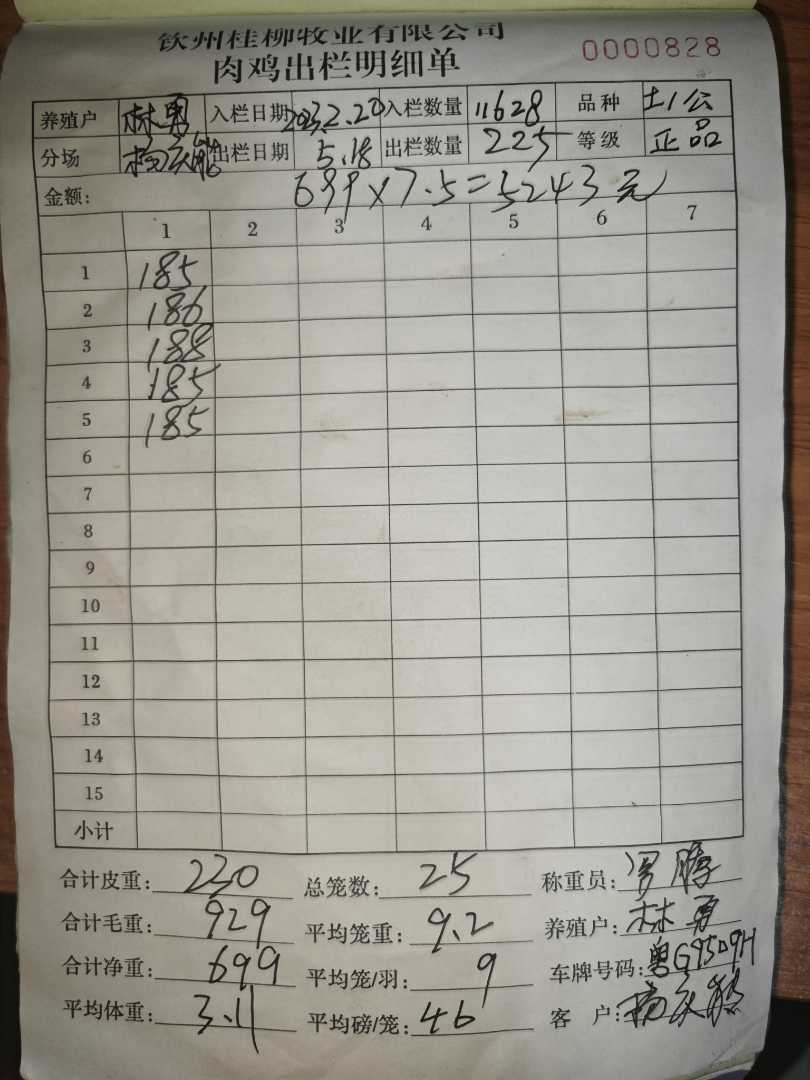 钦州桂柳牧业有限公司
肉鸡出栏明细单 0000828
养殖户 林勇 入栏日期 2023.2.20 入栏数量 11628 品种 土1公
分场 出栏日期 5.18 出栏数量 225 等级 正品
金额: 699×7.5=5243元
1 2 3 4 5 6 7
1 185
2 186
3 188
4 185
5 185
6
7
8
9
10
11
12
13
14
15
小计
合计皮重: 230 总笼数: 25 称重员: 罗腾
合计毛重: 929 平均笼重: 9.2 养殖户: 林勇
合计净重: 699 平均笼/羽: 9 车牌号码: 粤G9509H
平均体重: 3.11 平均磅/笼: 46 客户: